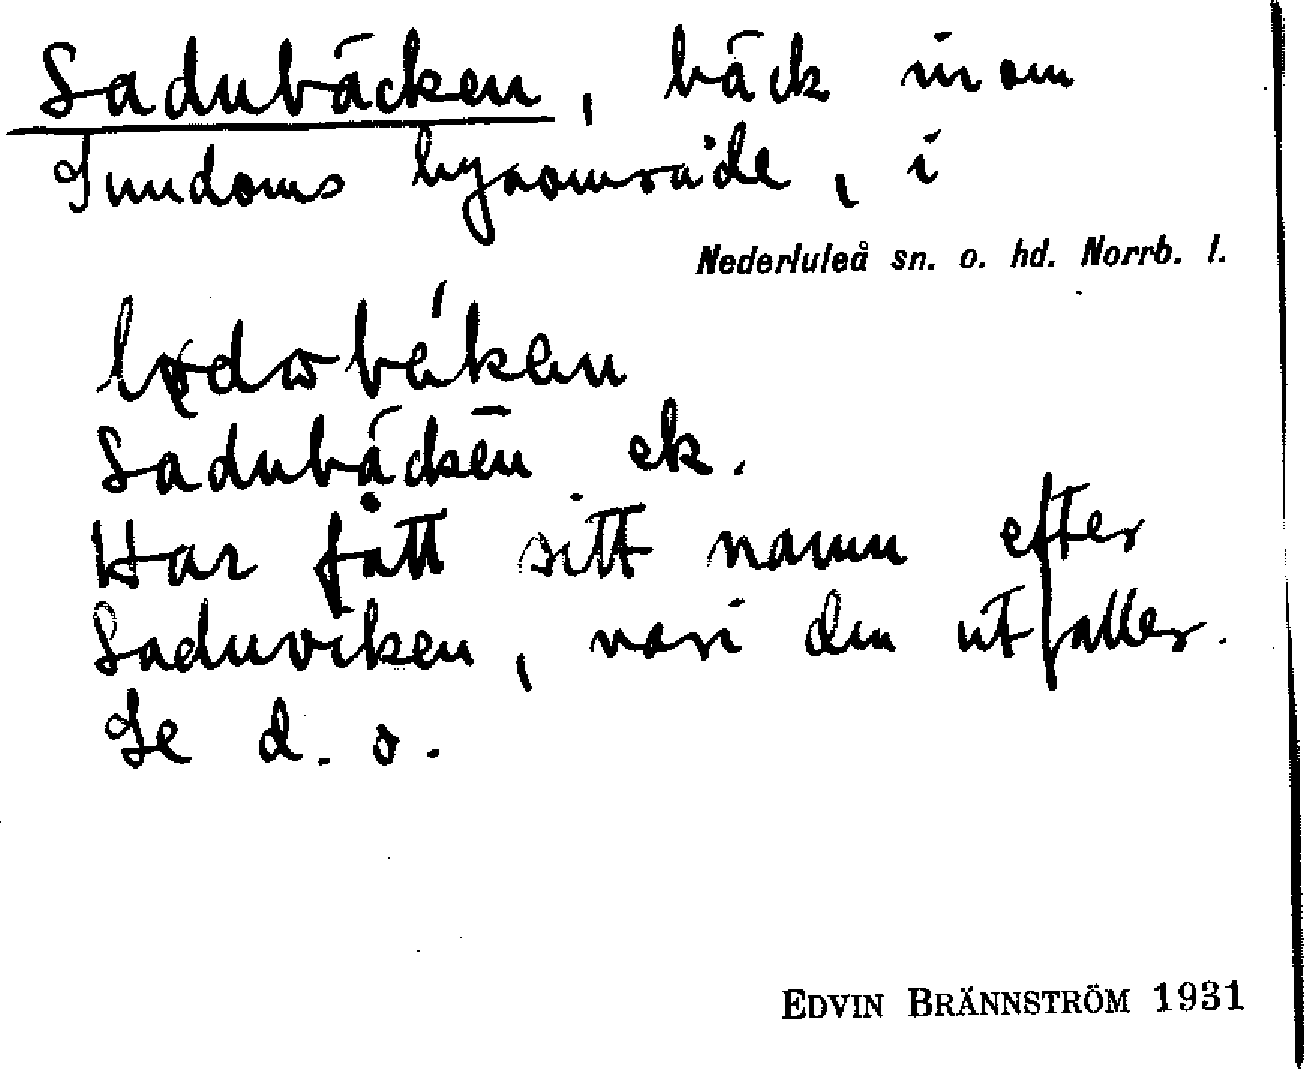 Sadubäcken, bäck inom
Sundoms byaområde, i
Nederluleå sn. o. hd. Norrb. l.
Sadubäcken ek.
Har fått sitt namn efter
Saduviken, vari den utfaller.
Se d. o.
EDVIN BRÄNNSTRÖM 1931